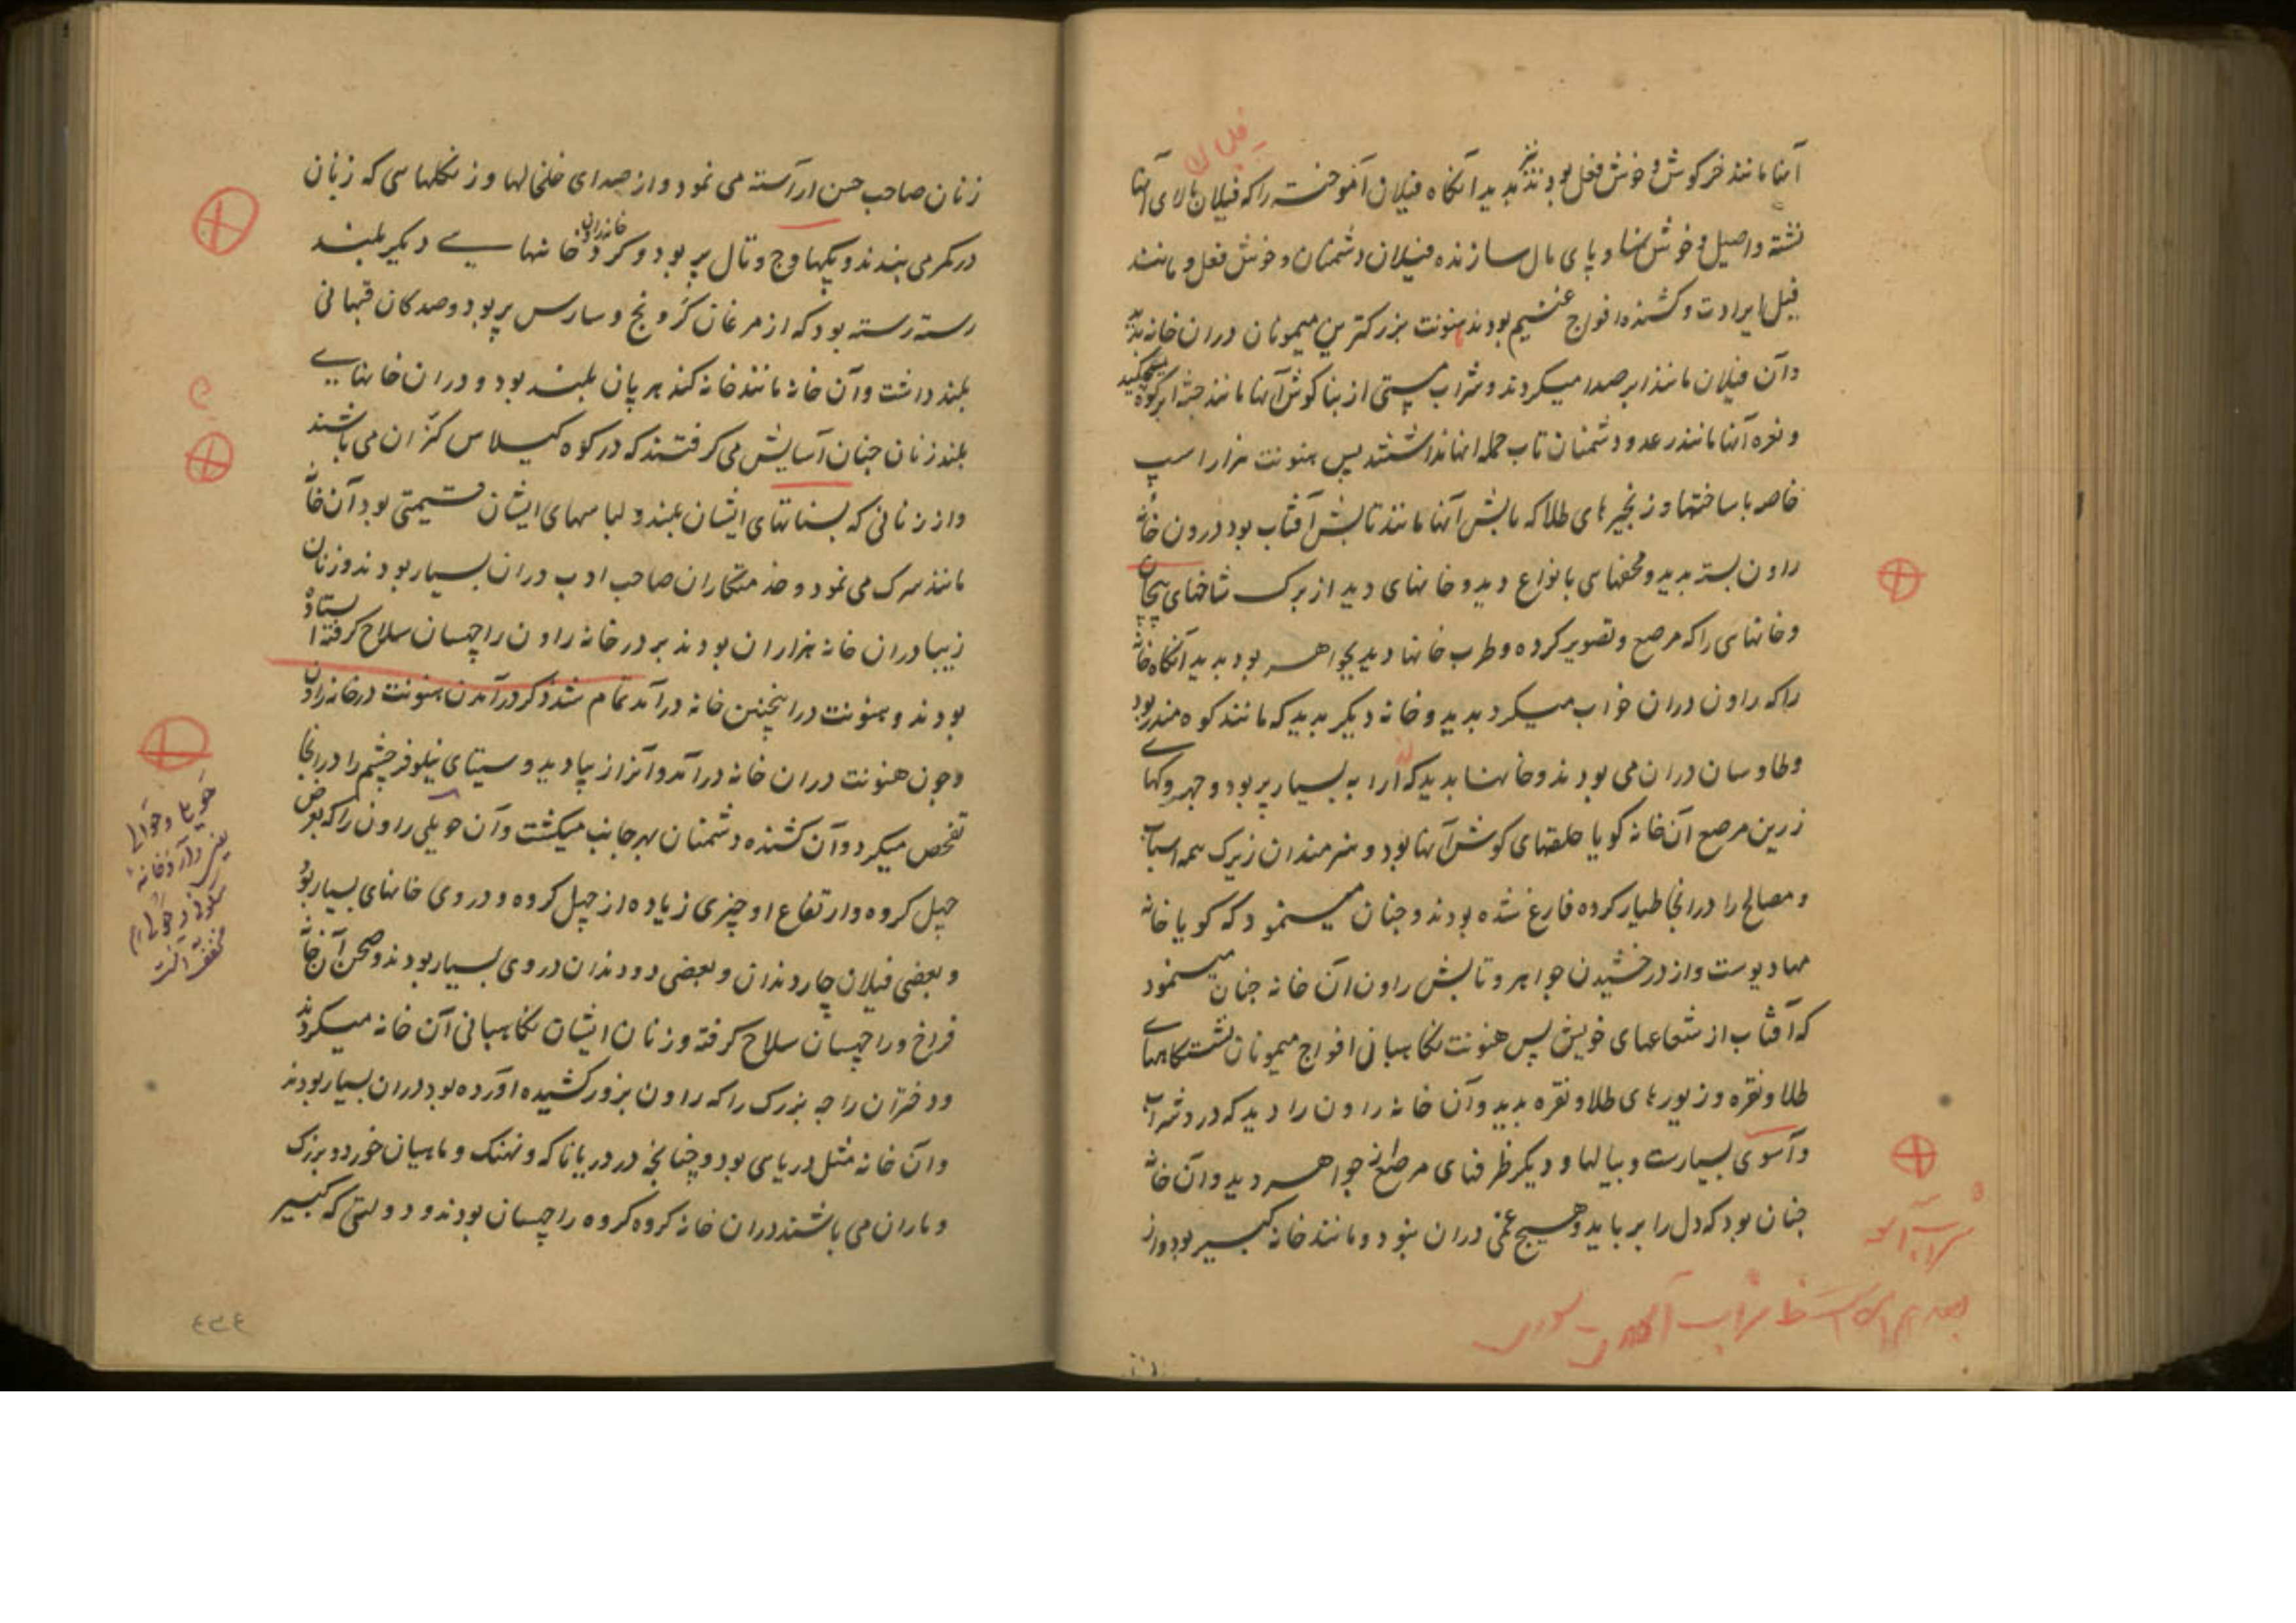 آنها مانند خرکوش و خوش فعل بودند بدید آنکاه فیلان آموخته را که فیلان بالای آنها
نشسته و اصیل و خوش نما و پای مال سازنده فیلان دشمنان و خوش فعل و مانند
فیل ایرادت و کشنده افواج غنیم بودند هنونت بزرکترین میمونان دران خانه بدید
و آن فیلان مانند ابر صدا میکردند و شراب مستی از بناکوش آنها مانند چشمه از کوه میچکید
و نعره آنها مانند رعد و دشمنان تاب حمله انها نداشتند پس هنونت هزار اسپ
خاصه با ساختها و زنجیرهای طلا که تابش آنها مانند تابش آفتاب بود درون خانه
راون بسته بدید و محفهای بانواع دید و خانهای دید از برک شاخهای پیچان
و خانهای را که مرصع و تصویر کرده و طرب خانها دیکر بجواهر بود بدید آنکاه خانه
را که راون دران خواب میکرد بدید و خانه دیکر بدید که مانند کوه مندر بود
و طاوسان دران می بودند و خانها بدید که ارابه بسیار پر بود و جهروکهای
زرین مرصع آن خانه کویا حلقهای کوش آنها بود و هنرمندان زیرک همه اسباب
و مصالح را درانجا طیار کرده فارغ شده بودند و چنان مینمود که کویا خانه
مهادیوست و از درخشیدن جواهر و تابش راون آن خانه چنان مینمود
که آفتاب از شعاعهای خویش پس هنونت نکاهبانی افواج میمونان نشستکاههای
طلا و نقره و زیورهای طلا و نقره بدید و آن خانه راون را دید که در و شراب
و آسوی بسیارست و پیالها و دیکر ظرفهای مرصع از جواهر دید و آن خانه
چنان بود که دل را برباید و هیچ غمی دران نبود و مانند خانه کبیر بود و از
زنان صاحب حسن آراسته می نمود و از صدای خلخالها و زنکلهای که زنان
در کمر می بندند و پکهاوج و تال پر بود و کرد خانه راون خانهایی دیکر بلند
رسته رسته بود که از مرغان کرونج و سارس پر بود و صد کان قبهانی
بلند داشت و آن خانه مانند خانه کندهرپان بلند بود و دران خانهایی
بلند زنان چنان آسایش می کرفتند که در کوه کیلاس کنران می باشند
و از زنانی که پستانهای ایشان بلند و لباسهای ایشان قیمتی بود آن خانه
مانند سرک می نمود و خدمتکاران صاحب ادب دران بسیار بودند و زنان
زیبا دران خانه هزاران بودند بر در خانه راون راچهسان سلاح کرفته ایستاده
بودند و هنونت در اینچنین خانه درآمد تمام شد ذکر درآمدن هنونت در خانه راون
و چون هنونت دران خانه درآمد و آنرا زیبا دید و سیتای نیلوفر چشم را درانجا
تفحص میکرد و آن کشنده دشمنان بهر جانب میکشت و آن حویلی راون را که بعرض
چهل کروه و ارتفاع او چیزی زیاده از چهل کروه و در وی خانهای بسیار بود
و بعضی فیلان چار دندان و بعضی دو دندان در وی بسیار بودند و صحن آن خانه
فراخ و راچهسان سلاح کرفته و زنان ایشان نکاهبانی آن خانه میکردند
و دختران راجه بزرک را که راون بزور کشیده آورده بود دران بسیار بودند
و آن خانه مثل دریای بود و چنانچه در دریا ناکه و نهنک و ماهیان خورد و بزرک
و ماران می باشند دران خانه کروه کروه راچهسان بودند و دولتی که کبیر